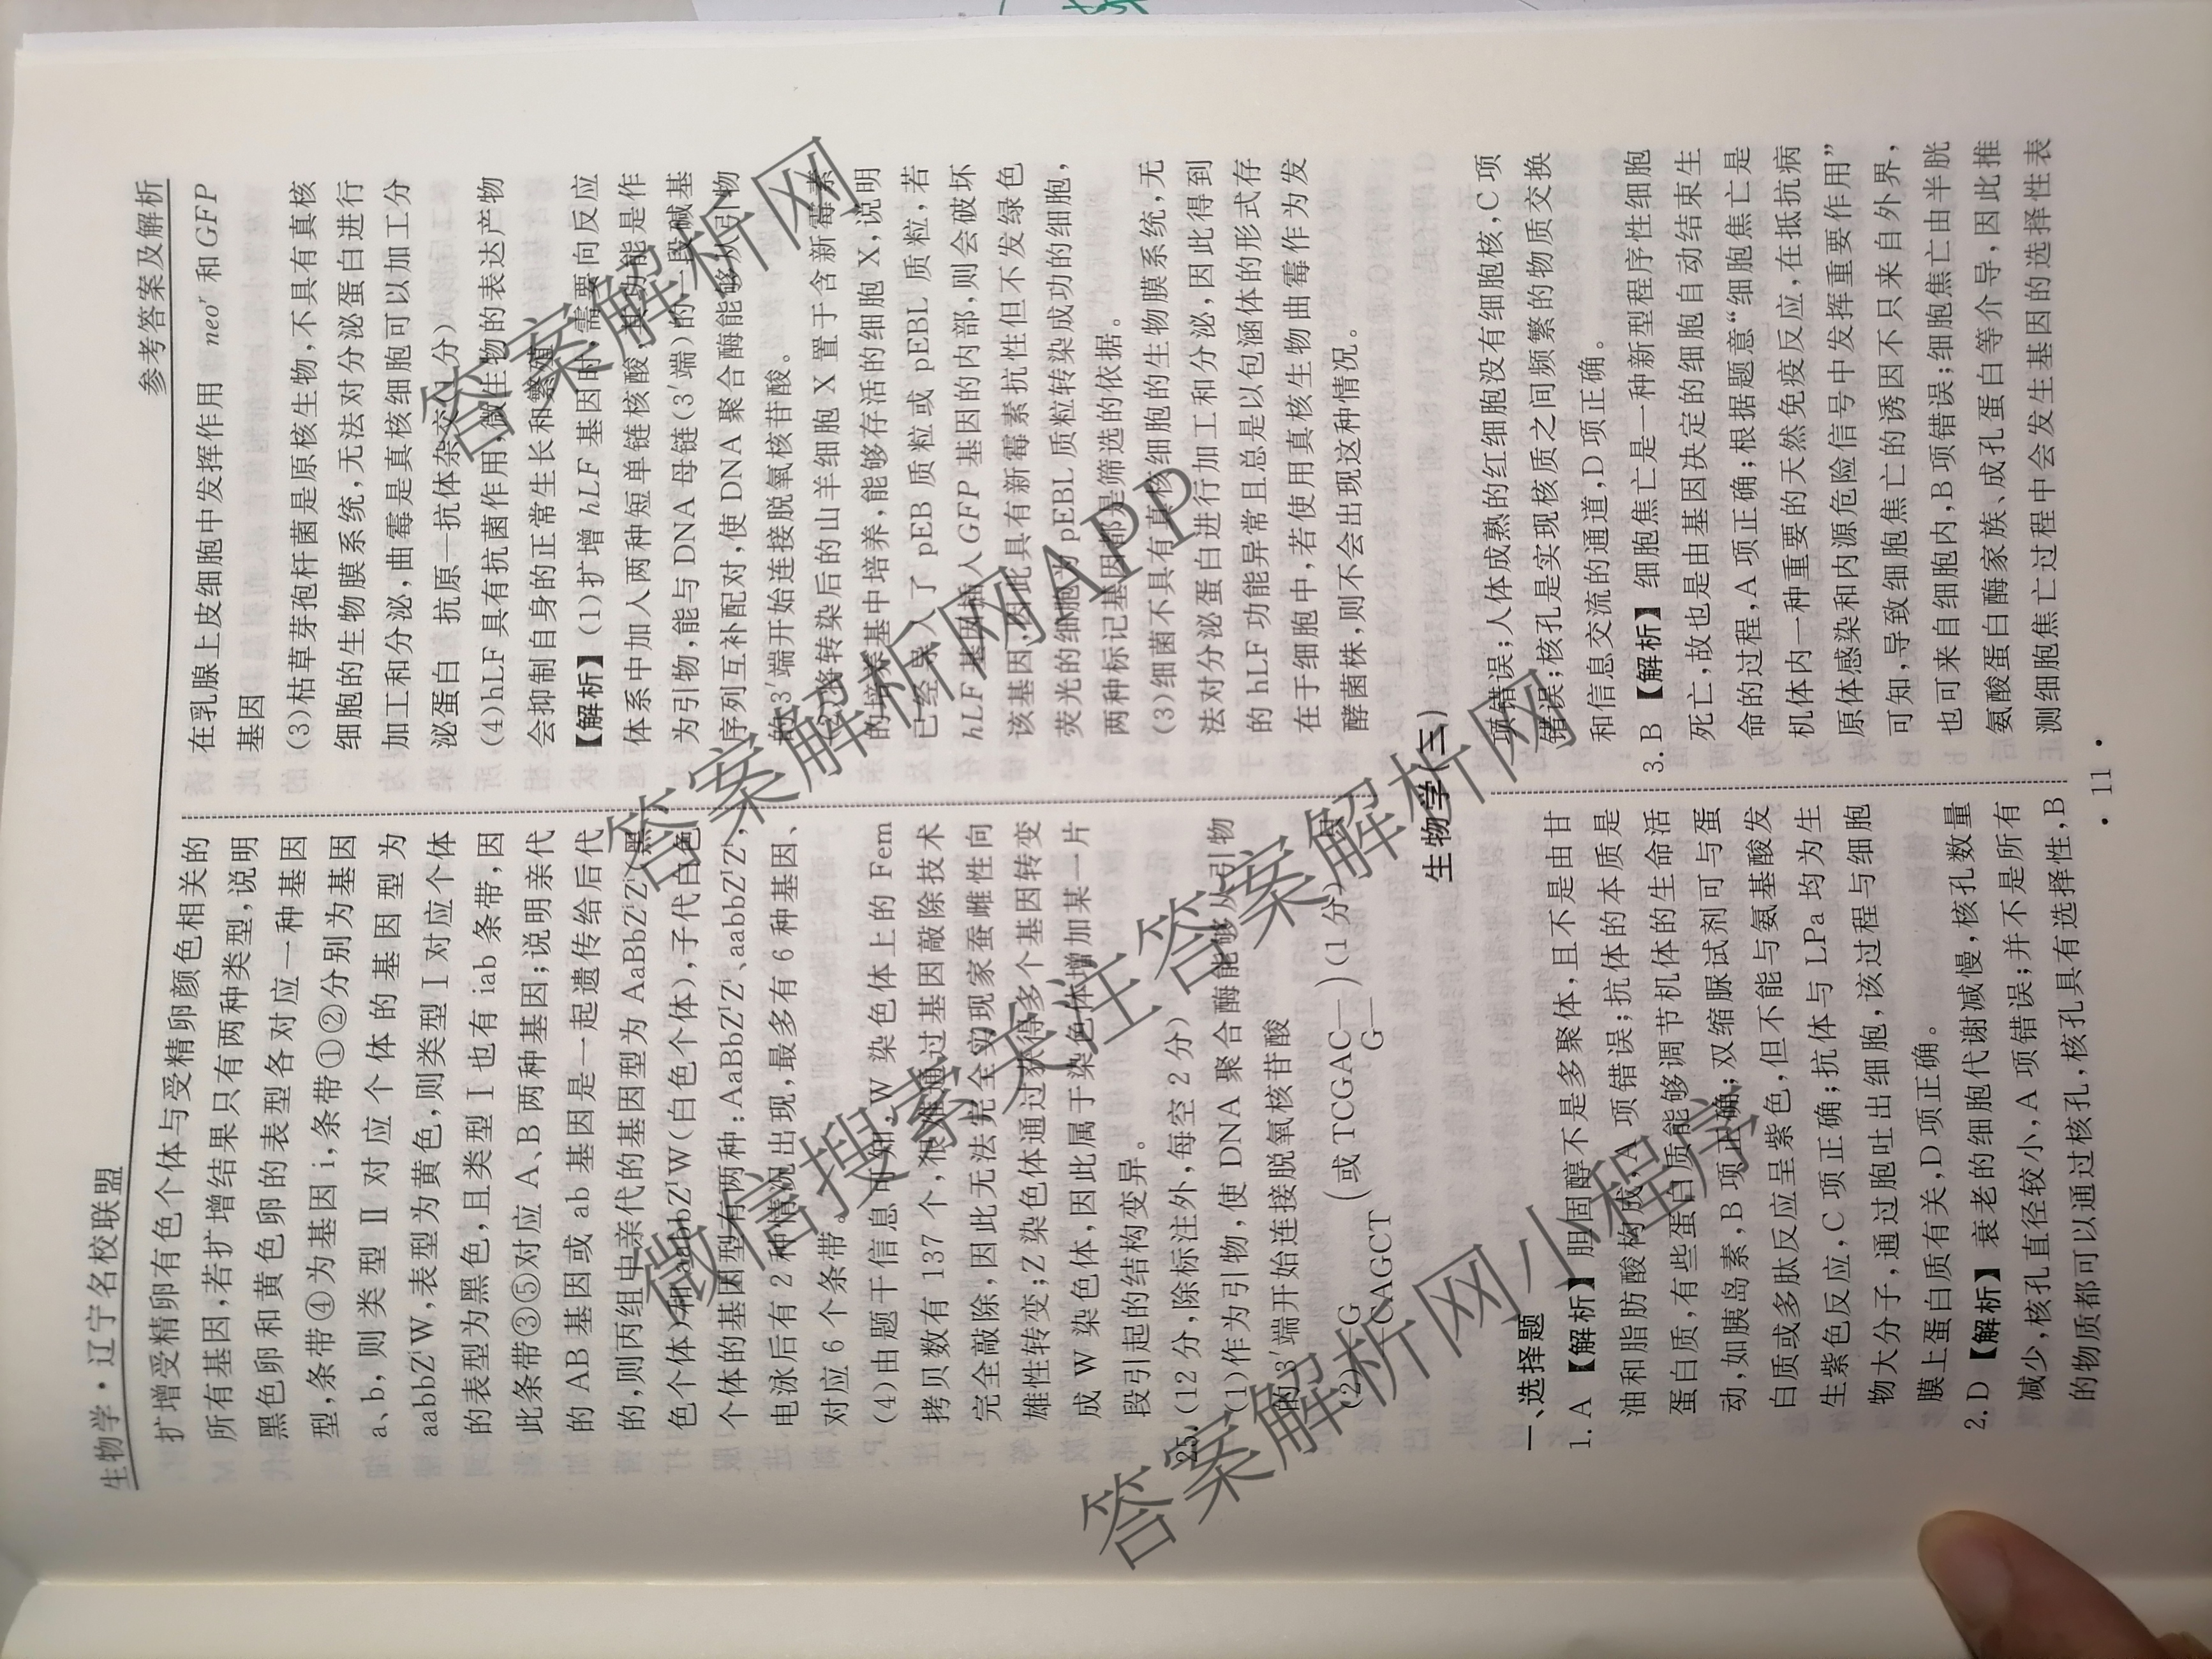 生物学·辽宁名校联盟
参考答案及解析
扩增受精卵有色个体与受精卵颜色相关的
所有基因,若扩增结果只有两种类型,说明
黑色卵和黄色卵的表型各对应一种基因
型,条带④为基因 i,条带①②分别为基因
a、b,则类型Ⅱ对应个体的基因型为
aabbZⁱW,表型为黄色,则类型Ⅰ对应个体
的表型为黑色,且类型Ⅰ也有 iab 条带,因
此条带③⑤对应 A、B 两种基因;说明亲代
的 AB 基因或 ab 基因是一起遗传给后代
的,则丙组中亲代的基因型为 AaBbZⁱZⁱ(黑
色个体)和 aabbZᴵW(白色个体),子代白色
个体的基因型有两种:AaBbZᴵZⁱ、aabbZᴵZⁱ,
电泳后有 2 种情况出现,最多有 6 种基因、
对应 6 个条带。
(4)由题干信息可知,W 染色体上的 Fem
拷贝数有 137 个,很难通过基因敲除技术
完全敲除,因此无法完全实现家蚕雌性向
雄性转变;Z 染色体通过获得多个基因转变
成 W 染色体,因此属于染色体增加某一片
段引起的结构变异。
25.(12 分,除标注外,每空 2 分)
(1)作为引物,使 DNA 聚合酶能够从引物
的 3′端开始连接脱氧核苷酸
(2)—G
—CAGCT
(或 TCGAC—
G—)(1 分)
在乳腺上皮细胞中发挥作用 neoʳ 和 GFP
基因
(3)枯草芽孢杆菌是原核生物,不具有真核
细胞的生物膜系统,无法对分泌蛋白进行
加工和分泌,曲霉是真核细胞可以加工分
泌蛋白 抗原—抗体杂交(1 分)
(4)hLF 具有抗菌作用,微生物的表达产物
会抑制自身的正常生长和繁殖
【解析】(1)扩增 hLF 基因时,需要向反应
体系中加入两种短单链核酸,其功能是作
为引物,能与 DNA 母链(3′端)的一段碱基
序列互补配对,使 DNA 聚合酶能够从引物
的 3′端开始连接脱氧核苷酸。
(2)将转染后的山羊细胞 X 置于含新霉素
的培养基中培养,能够存活的细胞 X,说明
已经导入了 pEB 质粒或 pEBL 质粒,若
hLF 基因插入 GFP 基因的内部,则会破坏
该基因,因此具有新霉素抗性但不发绿色
荧光的细胞为 pEBL 质粒转染成功的细胞,
两种标记基因都是筛选的依据。
(3)细菌不具有真核细胞的生物膜系统,无
法对分泌蛋白进行加工和分泌,因此得到
的 hLF 功能异常且总是以包涵体的形式存
在于细胞中,若使用真核生物曲霉作为发
酵菌株,则不会出现这种情况。
生物学(三)
一、选择题
1. A 【解析】胆固醇不是多聚体,且不是由甘
油和脂肪酸构成,A 项错误;抗体的本质是
蛋白质,有些蛋白质能够调节机体的生命活
动,如胰岛素,B 项正确;双缩脲试剂可与蛋
白质或多肽反应呈紫色,但不能与氨基酸发
生紫色反应,C 项正确;抗体与 LPa 均为生
物大分子,通过胞吐出细胞,该过程与细胞
膜上蛋白质有关,D 项正确。
2. D 【解析】衰老的细胞代谢减慢,核孔数量
减少,核孔直径较小,A 项错误;并不是所有
的物质都可以通过核孔,核孔具有选择性,B
项错误;人体成熟的红细胞没有细胞核,C 项
错误;核孔是实现核质之间频繁的物质交换
和信息交流的通道,D 项正确。
3. B 【解析】细胞焦亡是一种新型程序性细胞
死亡,故也是由基因决定的细胞自动结束生
命的过程,A 项正确;根据题意“细胞焦亡是
机体内一种重要的天然免疫反应,在抵抗病
原体感染和内源危险信号中发挥重要作用”
可知,导致细胞焦亡的诱因不只来自外界,
也可来自细胞内,B 项错误;细胞焦亡由半胱
氨酸蛋白酶家族、成孔蛋白等介导,因此推
测细胞焦亡过程中会发生基因的选择性表
· 11 ·
答案解析网
答案解析网APP
微信搜索天全答案解析网
答案解析网小程序